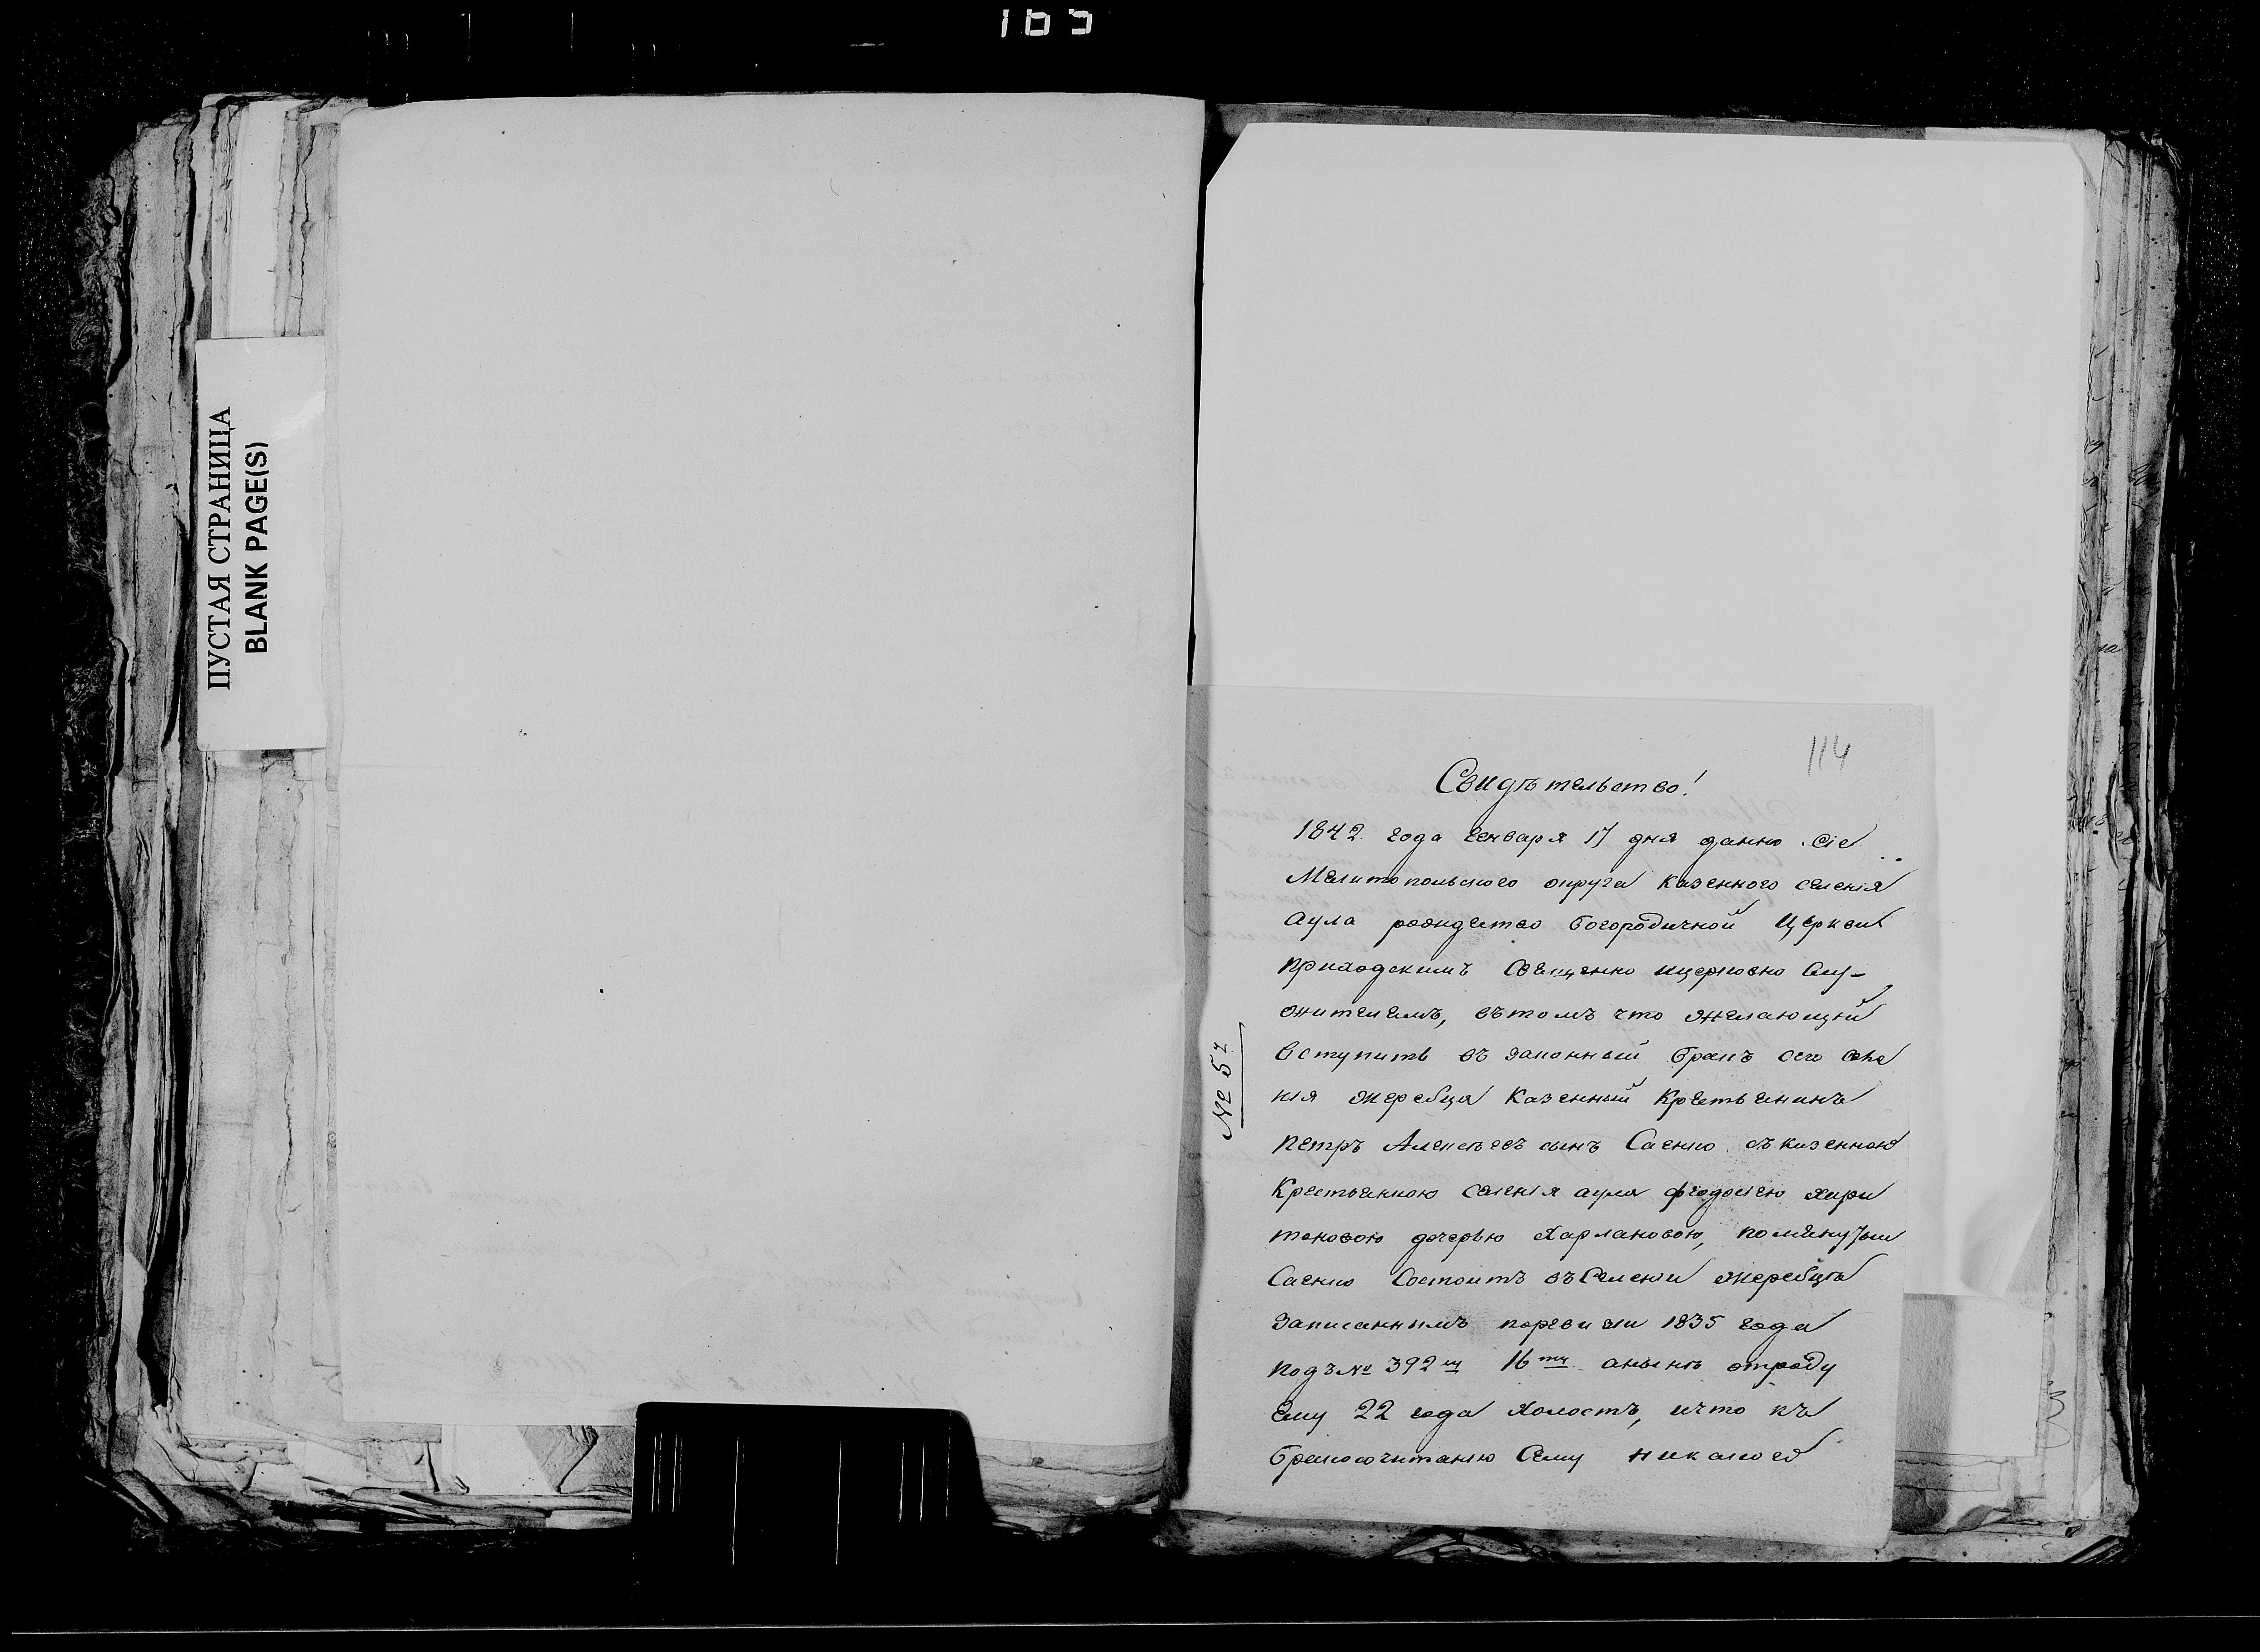 165
ПУСТАЯ СТРАНИЦА
BLANK PAGE(S)
114
Свидѣтельство!
1842. года Генваря 17 дня данно сіе
Мелитопольского округа казенного селенія
Аула рождество богородичной Церкви
приходскимъ Священно ицерковно слу-
жителемъ, вътомъ что желающій
вступить въ законный бракъ сего селе
нія жеребца Казенный Крестьянинъ
петръ Алексѣевъ сынъ Саенко съ казенною
Крестьянкою селенія аула феодосіею хари
тоновою дочерью Харлановою, помянутый
Саенко Состоитъ въ Селеніи жеребцѣ
Записаннымъ поревизіи 1835 года
подъ № 392 16 анынѣ отроду
Ему 22 года Холостъ, ичто къ
бракосочитанію Сему никакой
№ 57